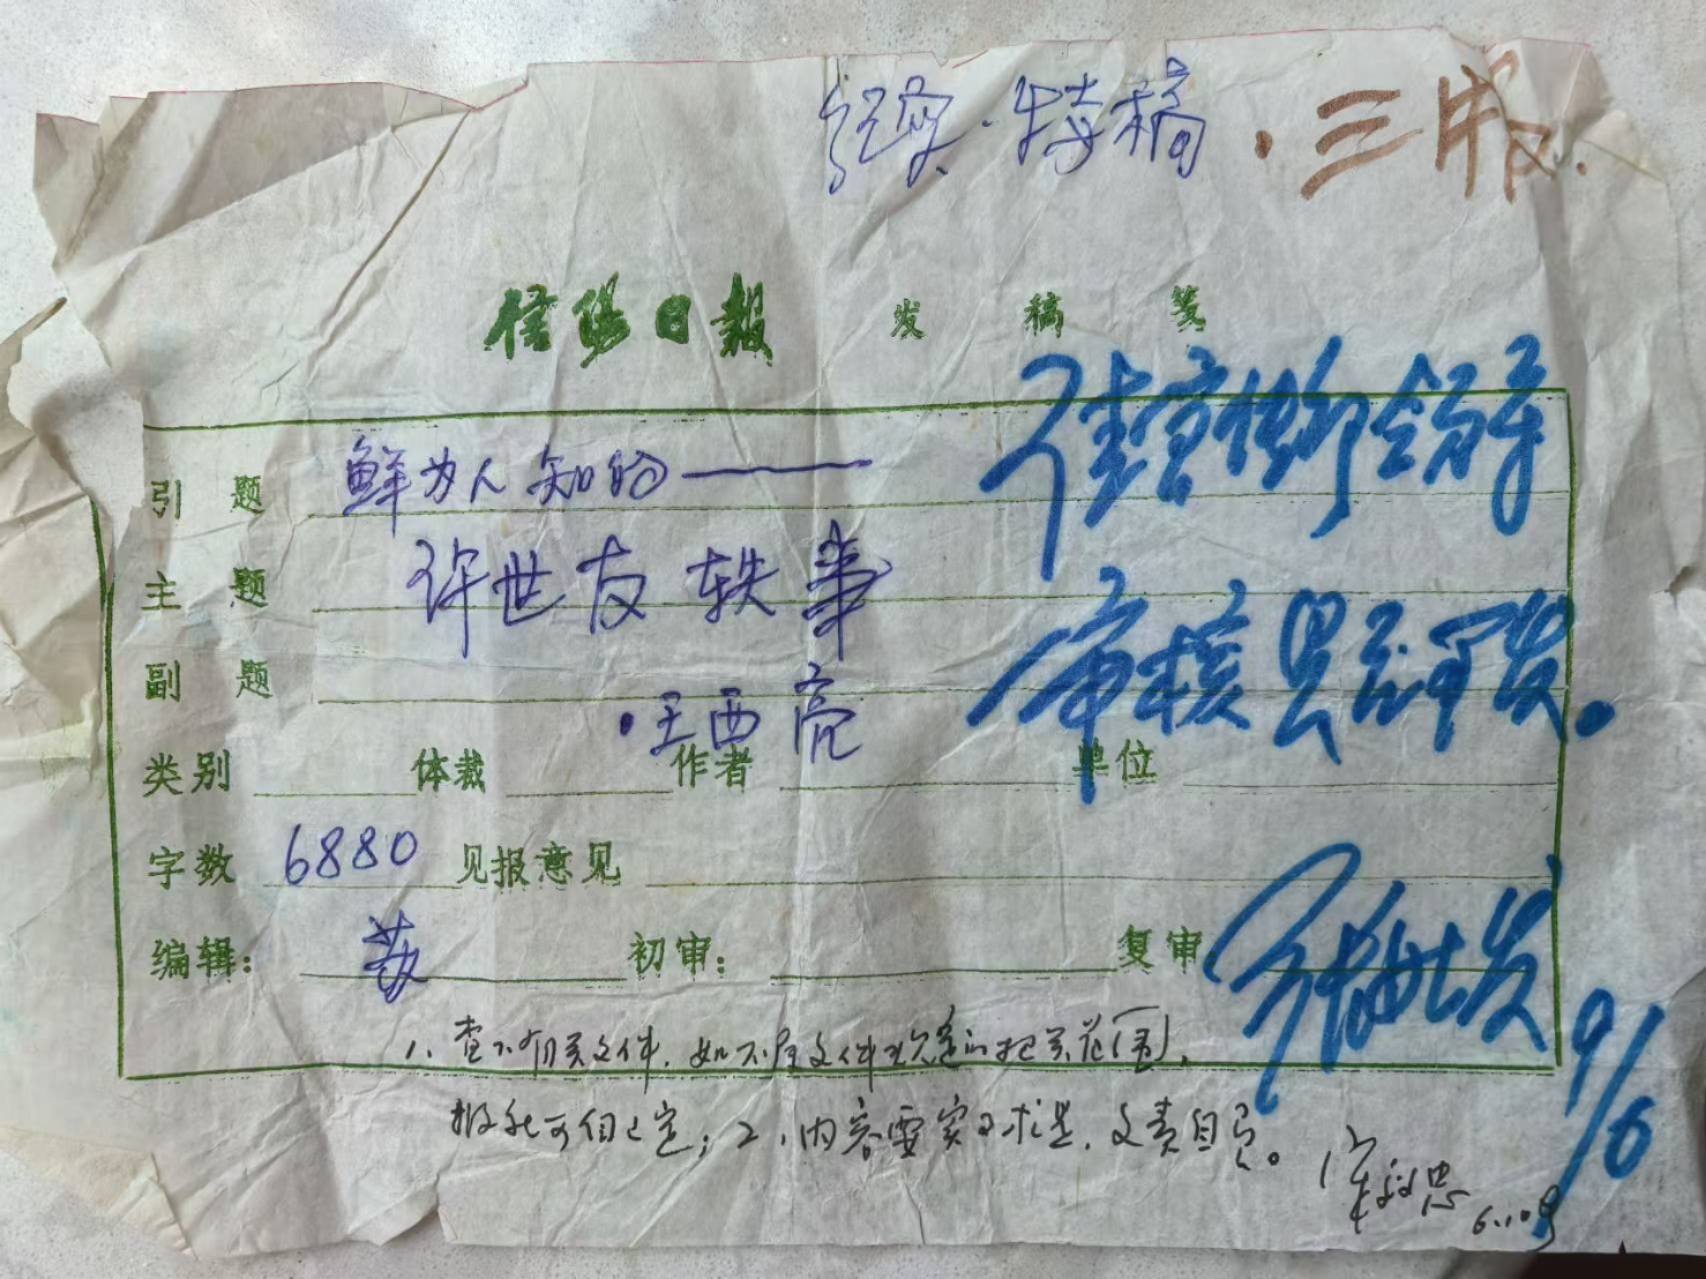 纪实·特稿·三版.
信阳日报 发稿笺
引题 鲜为人知的——
主题 许世友轶事
副题
·王西亮
类别 体裁 作者 单位
请宣传部领导
审核是否可发。
字数 6880 见报意见
编辑: 初审: 复审
9/6
1、查下有关文件,如不属文件规定的把关范围,
报社可自己定;2、内容要实事求是,文责自负。